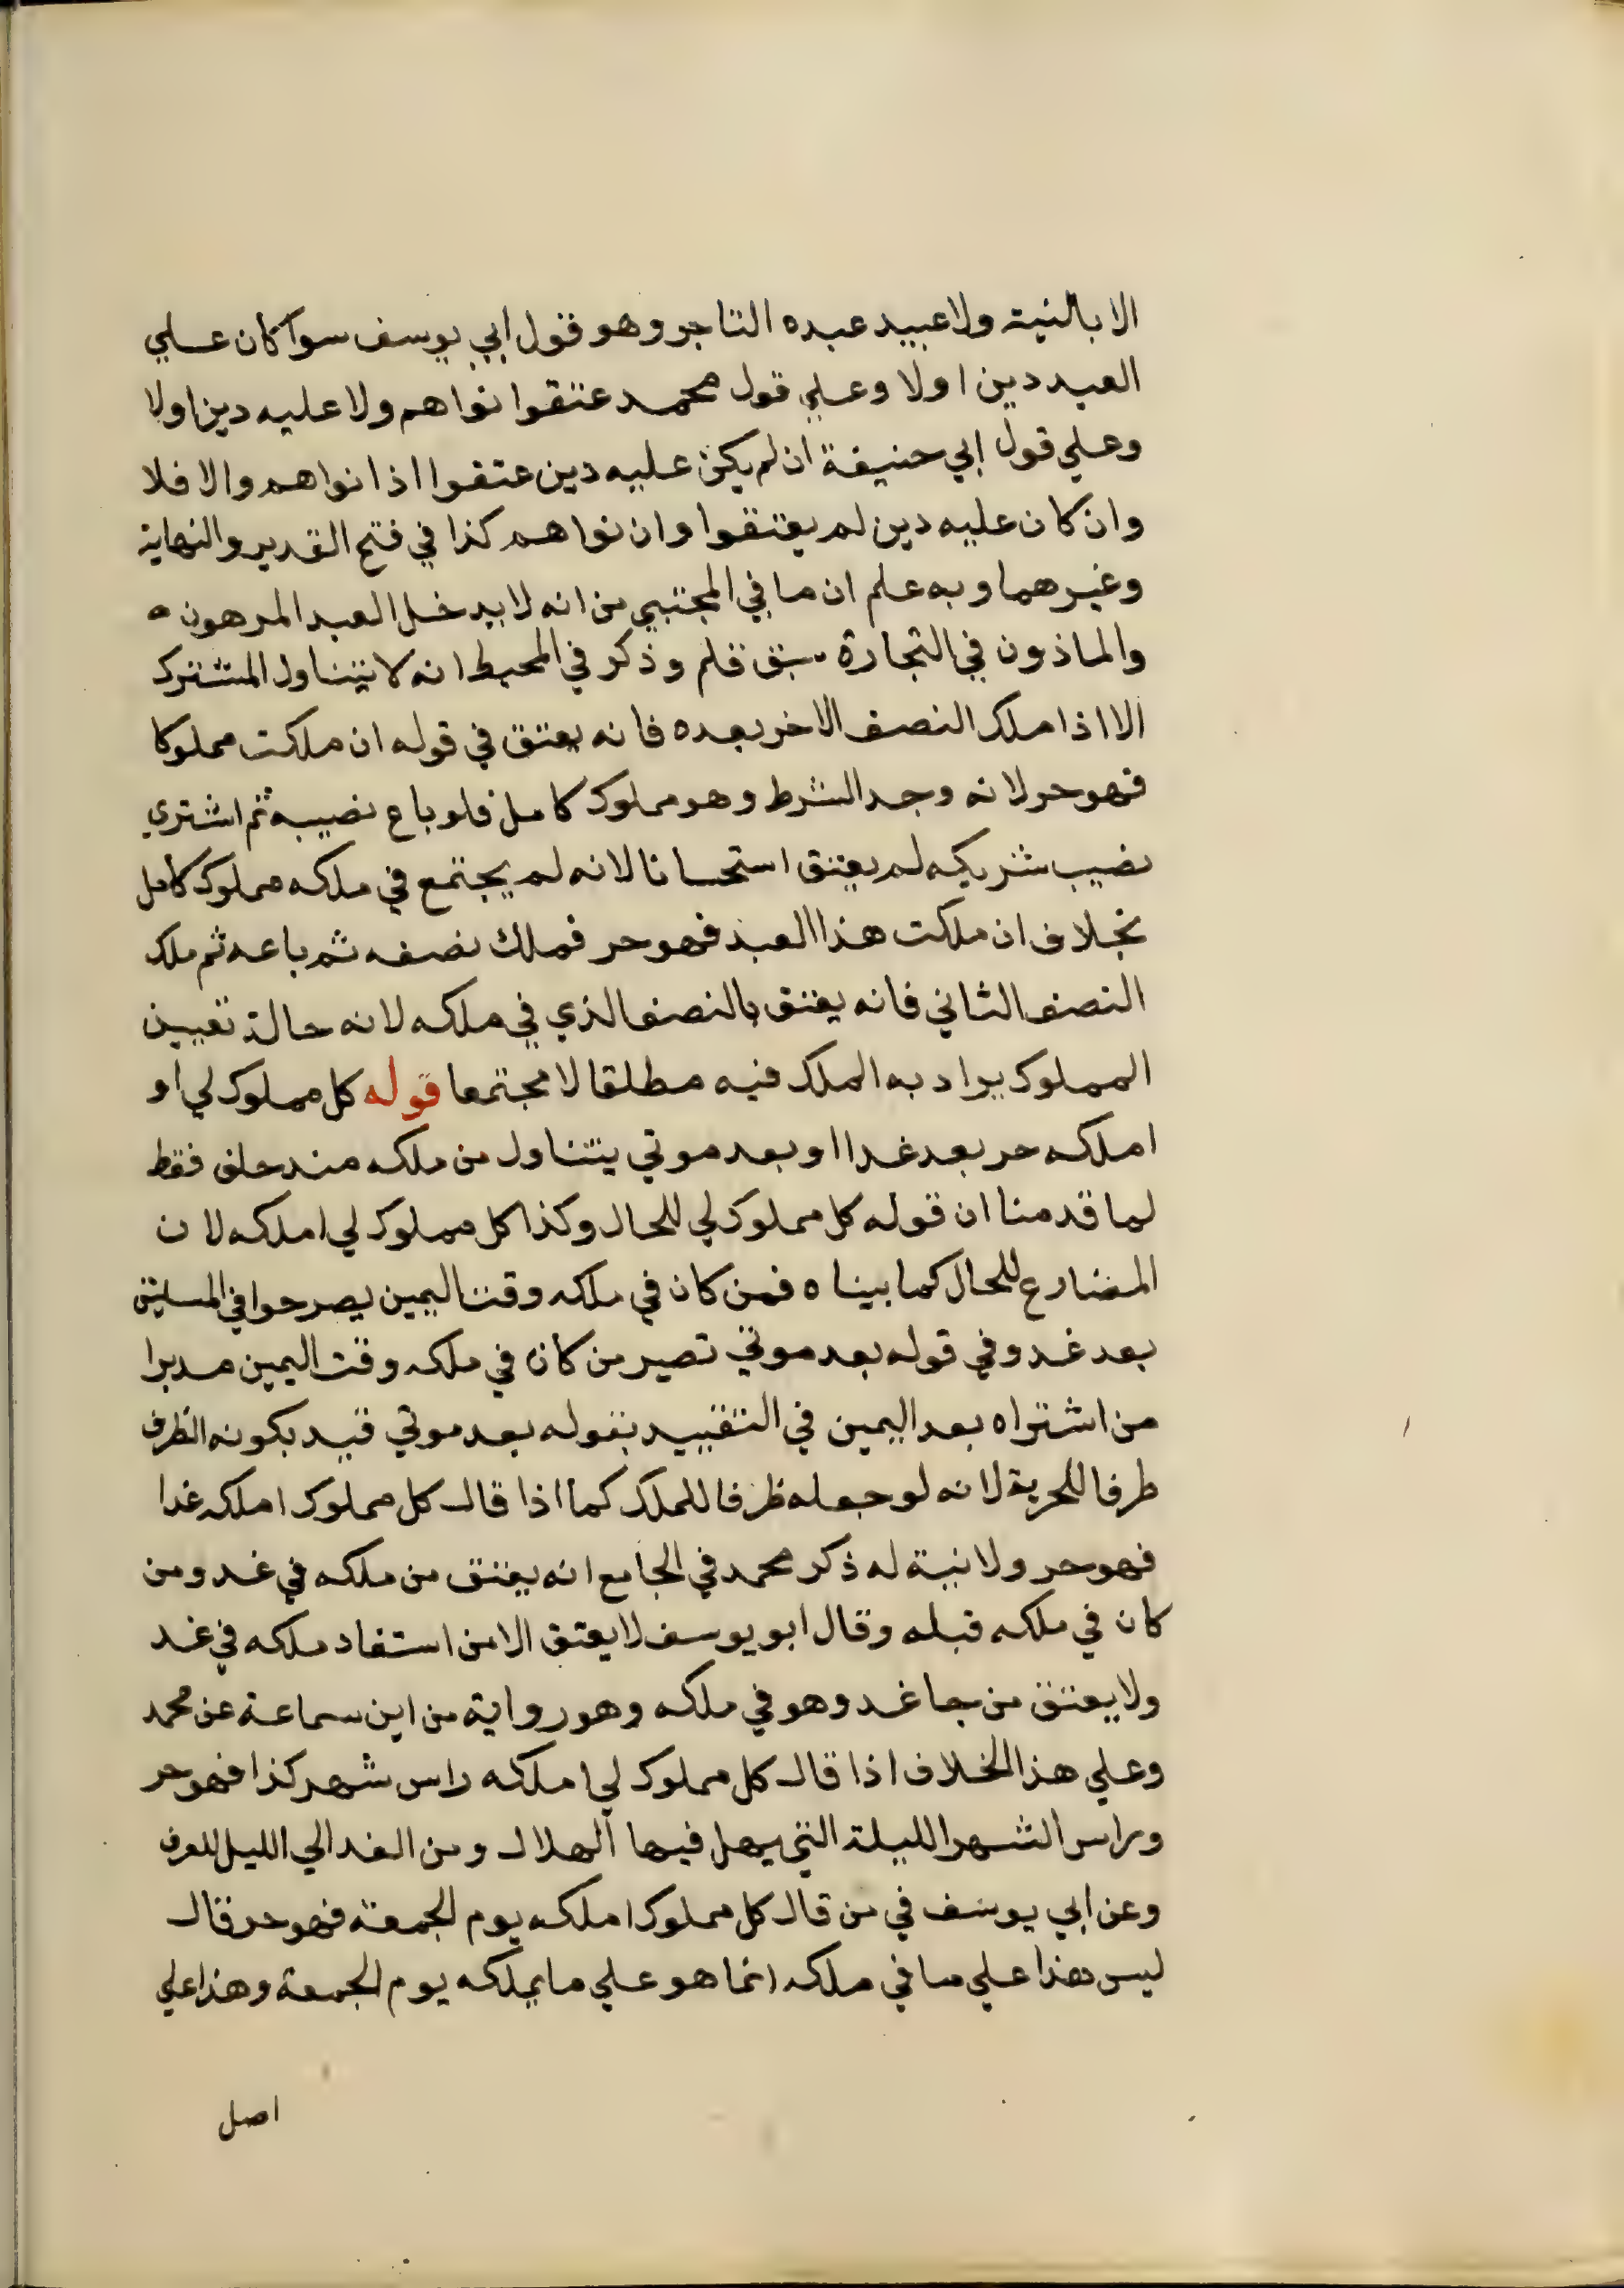 الا بالنية ولا عبيد عبده التاجر وهو قول ابي يوسف سوا كان علي
العبد دين اولا وعلي قول محمد عتقوا نواهم ولا عليه دين اولا
وعلي قول ابي حنيفة ان لم يكن عليه دين عتقوا اذا نواهم والا فلا
وان كان عليه دين لم يعتقوا وان نواهم كذا في فتح القدير والنهاية
وغيرهما وبه علم ان ما في المجتبي من انه لا يدخل العبد المرهون
والماذون في التجارة سبق قلم وذكر في المحيط انه لا يتناول المشترك
الا اذا ملك النصف الاخر بعده فانه يعتق في قوله ان ملكت مملوكا
فهو حر لانه وجد الشرط وهو مملوك كامل فلو باع نصيبه ثم اشتري
نصيب شريكه لم يعتق استحسانا لانه لم يجتمع في ملكه مملوك كامل
بخلاف ان ملكت هذا العبد فهو حر فملك نصفه ثم باعه ثم ملك
النصف الثاني فانه يعتق بالنصف الذي في ملكه لانه حالة تعيين
المملوك يراد به الملك فيه مطلقا لا مجتمعا قوله كل مملوك لي او
املكه حر بعد غد ا او بعد موتي يتناول من ملكه منذ حلف فقط
لما قدمنا ان قوله كل مملوك لي للحال وكذا كل مملوك لي املكه لان
المضارع للحال كما بيناه فمن كان في ملكه وقت اليمين يصر حوا في المسايئة
بعد غد وفي قوله بعد موتي تصير من كان في ملكه وقت اليمين مدبرا
من اشتراه بعد اليمين في التقييد بقوله بعد موتي قيد بكونه الظرف
ظرفا للحرية لانه لو جعله ظرفا للملك كما اذا قال كل مملوك املكه غدا
فهو حر ولا نية له ذكر محمد في الجامع انه يعتق من ملكه في غد ومن
كان في ملكه قبله وقال ابو يوسف لا يعتق الا من استفاد ملكه في غد
ولا يعتق من جا غد وهو في ملكه وهو رواية من ابن سماعة عن محمد
وعلي هذا الخلاف اذا قال كل مملوك لي املكه راس شهر كذا فهو حر
وراس الشهر الليلة التي يهل فيها الهلال ومن الغد الي الليل للعرف
وعن ابي يوسف في من قال كل مملوك املكه يوم الجمعة فهو حر قال
ليس هذا علي ما في ملكه انما هو علي ما يملكه يوم الجمعة وهذا علي
اصل